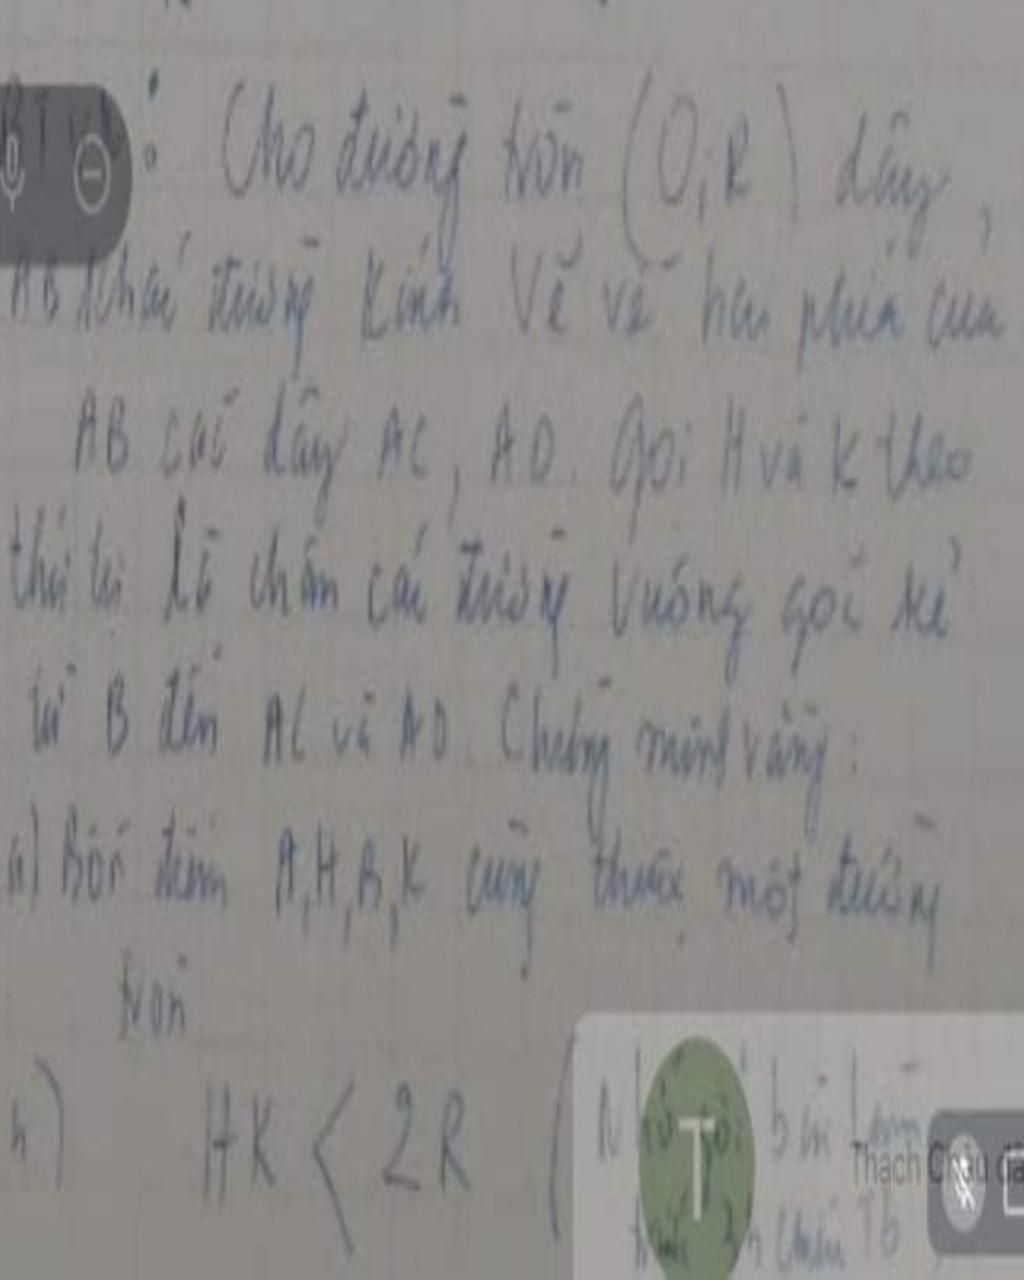 : Cho đường tròn (O;R) dây
AB khác đường kính Vẽ về hai phía của
AB các dây AC, AD. Gọi H và K theo
thứ tự là chân các đường vuông góc kẻ
từ B đến AC và AD. Chứng minh rằng:
a) Bốn điểm A,H,B,K cùng thuộc một đường
tròn
b) HK < 2R (
T
Thạch Châu